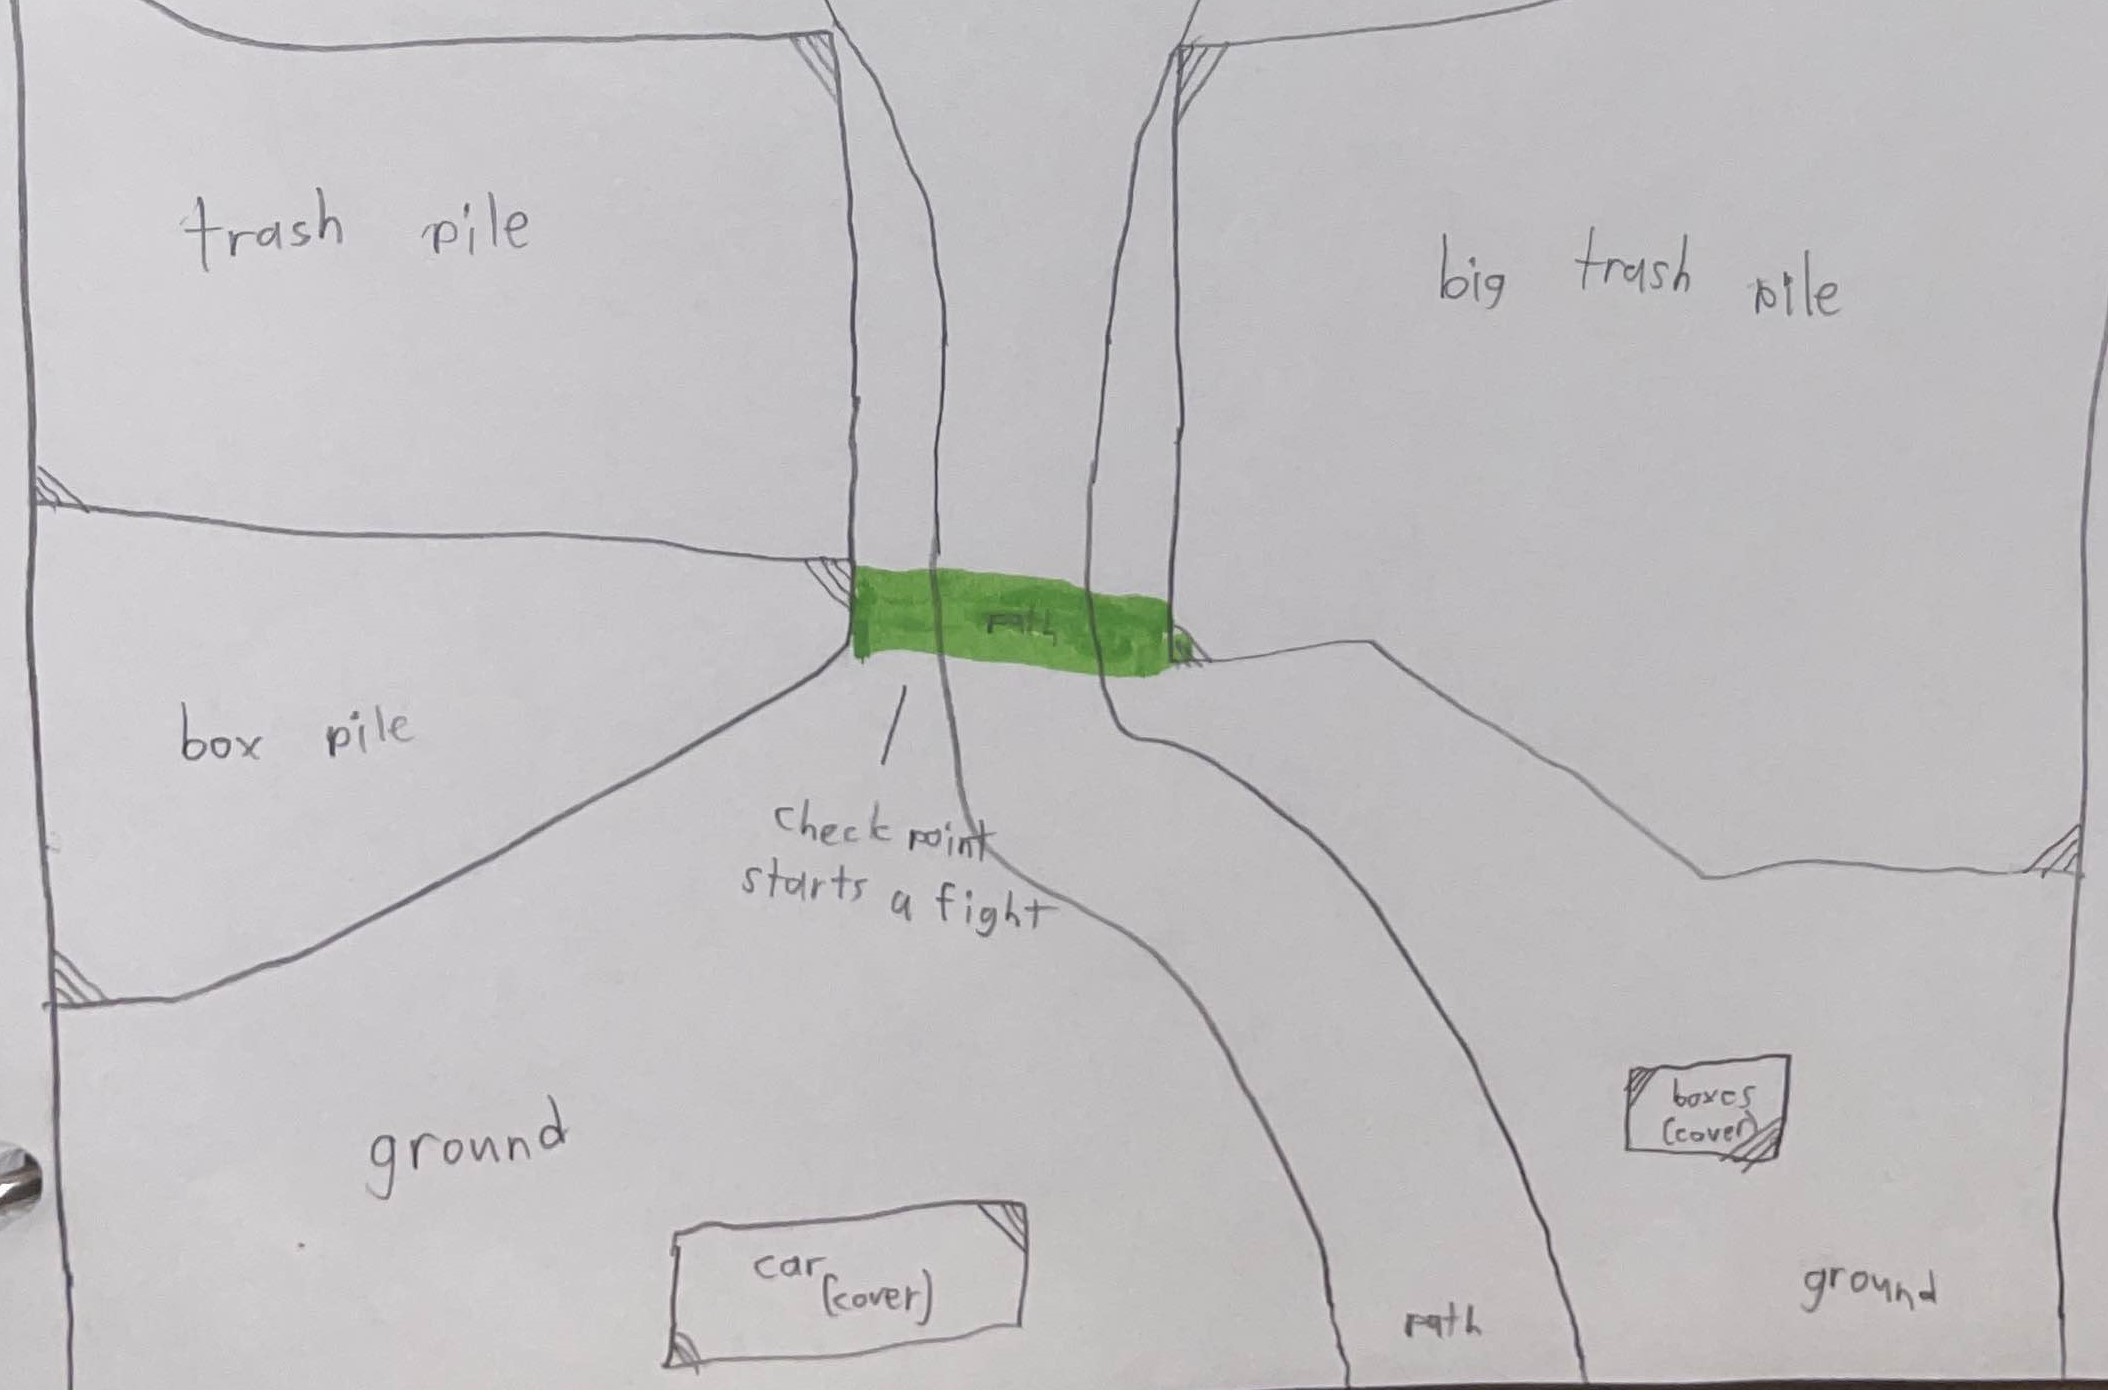 trash pile
big trash pile
path
box pile
check point
starts a fight
boxes
(cover)
ground
car
(cover)
ground
path